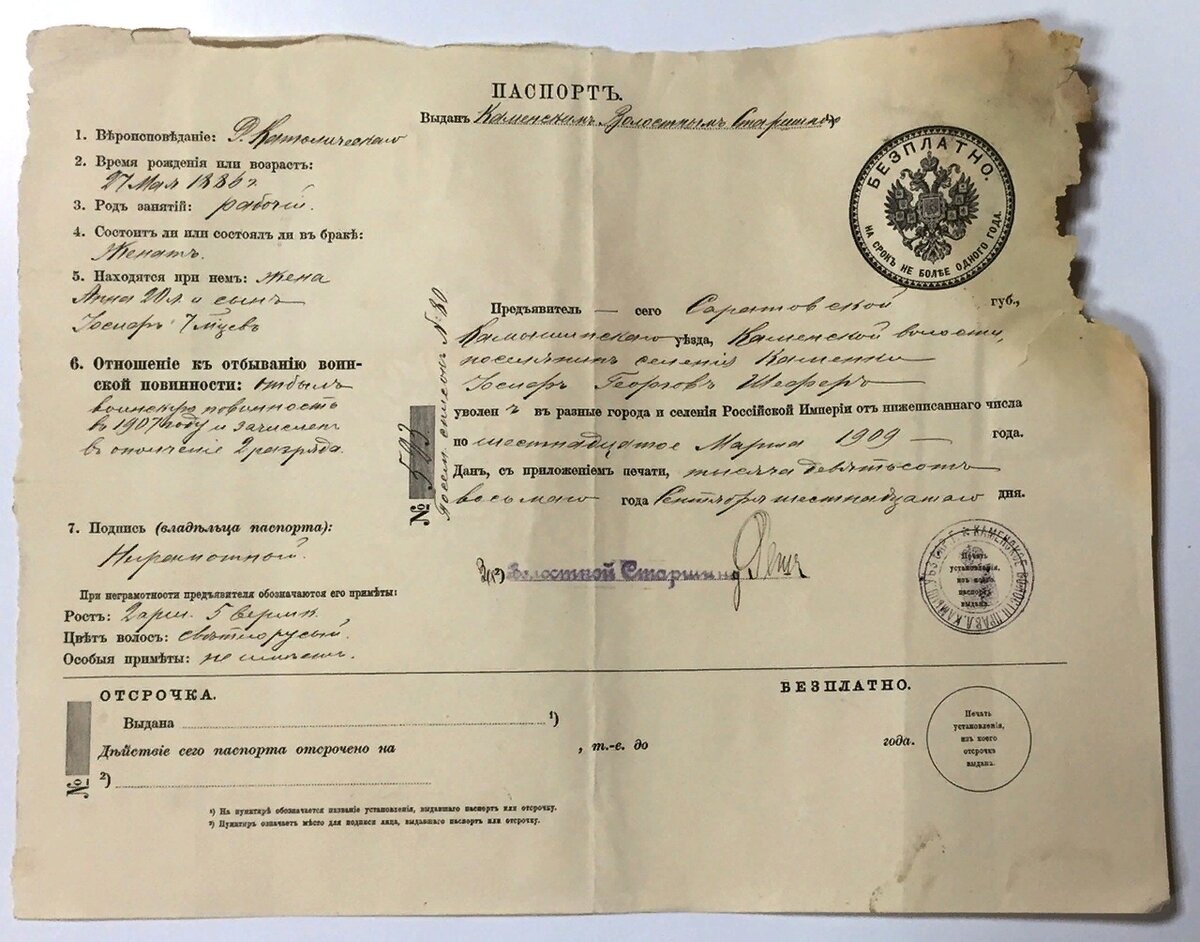 ПАСПОРТЪ.
Выданъ Каменскимъ Волостнымъ Старшиною
БЕЗПЛАТНО.
НА СРОКЪ НЕ БОЛѢЕ ОДНОГО ГОДА.
1. Вѣроисповѣданіе: Р. Католическаго
2. Время рожденія или возрастъ:
27 Мая 1886 г
3. Родъ занятій: рабочій.
4. Состоитъ ли или состоялъ ли въ бракѣ:
Женатъ.
5. Находятся при немъ: жена
Анна 20 л и сынъ
Іосифъ 7 мцевъ
6. Отношеніе къ отбыванію воин-
ской повинности: отбылъ
воинскую повинность
въ 1907 году и зачисленъ
въ ополченіе 2 разряда.
7. Подпись (владѣльца паспорта):
Неграмотной.
При неграмотности предъявителя обозначаются его примѣты:
Ростъ: 2 арш. 5 вершк.
Цвѣтъ волосъ: свѣтлорусый.
Особыя примѣты: не имѣетъ.
№ 593
Посем. списокъ № 80
Предъявитель — сего Саратовской губ.,
Камышинскаго уѣзда, Каменской волости,
поселянинъ селенія Каменки
Іосифъ Георговъ Шеферъ
уволен ъ въ разные города и селенія Россійской Имперіи отъ нижеписаннаго числа
по шестнадцатое Марта 1909 — года.
Данъ, съ приложеніемъ печати, тысяча девятьсотъ
восьмаго года Сентября шестнадцатаго дня.
²) Волостной Старшина
КАМЕНСКОЕ ВОЛОСТН. ПРАВЛ. КАМЫШ. УѢЗДА
Печать
установленія,
изъ коего
паспортъ
выданъ.
ОТСРОЧКА.
БЕЗПЛАТНО.
Выдана ¹)
Дѣйствіе сего паспорта отсрочено на , т.-е. до года.
№
²)
Печать
установленія,
изъ коего
отсрочка
выдана.
¹) На пунктирѣ обозначается названіе установленія, выдавшаго паспортъ или отсрочку.
²) Пунктиръ означаетъ мѣсто для подписи лица, выдавшаго паспортъ или отсрочку.